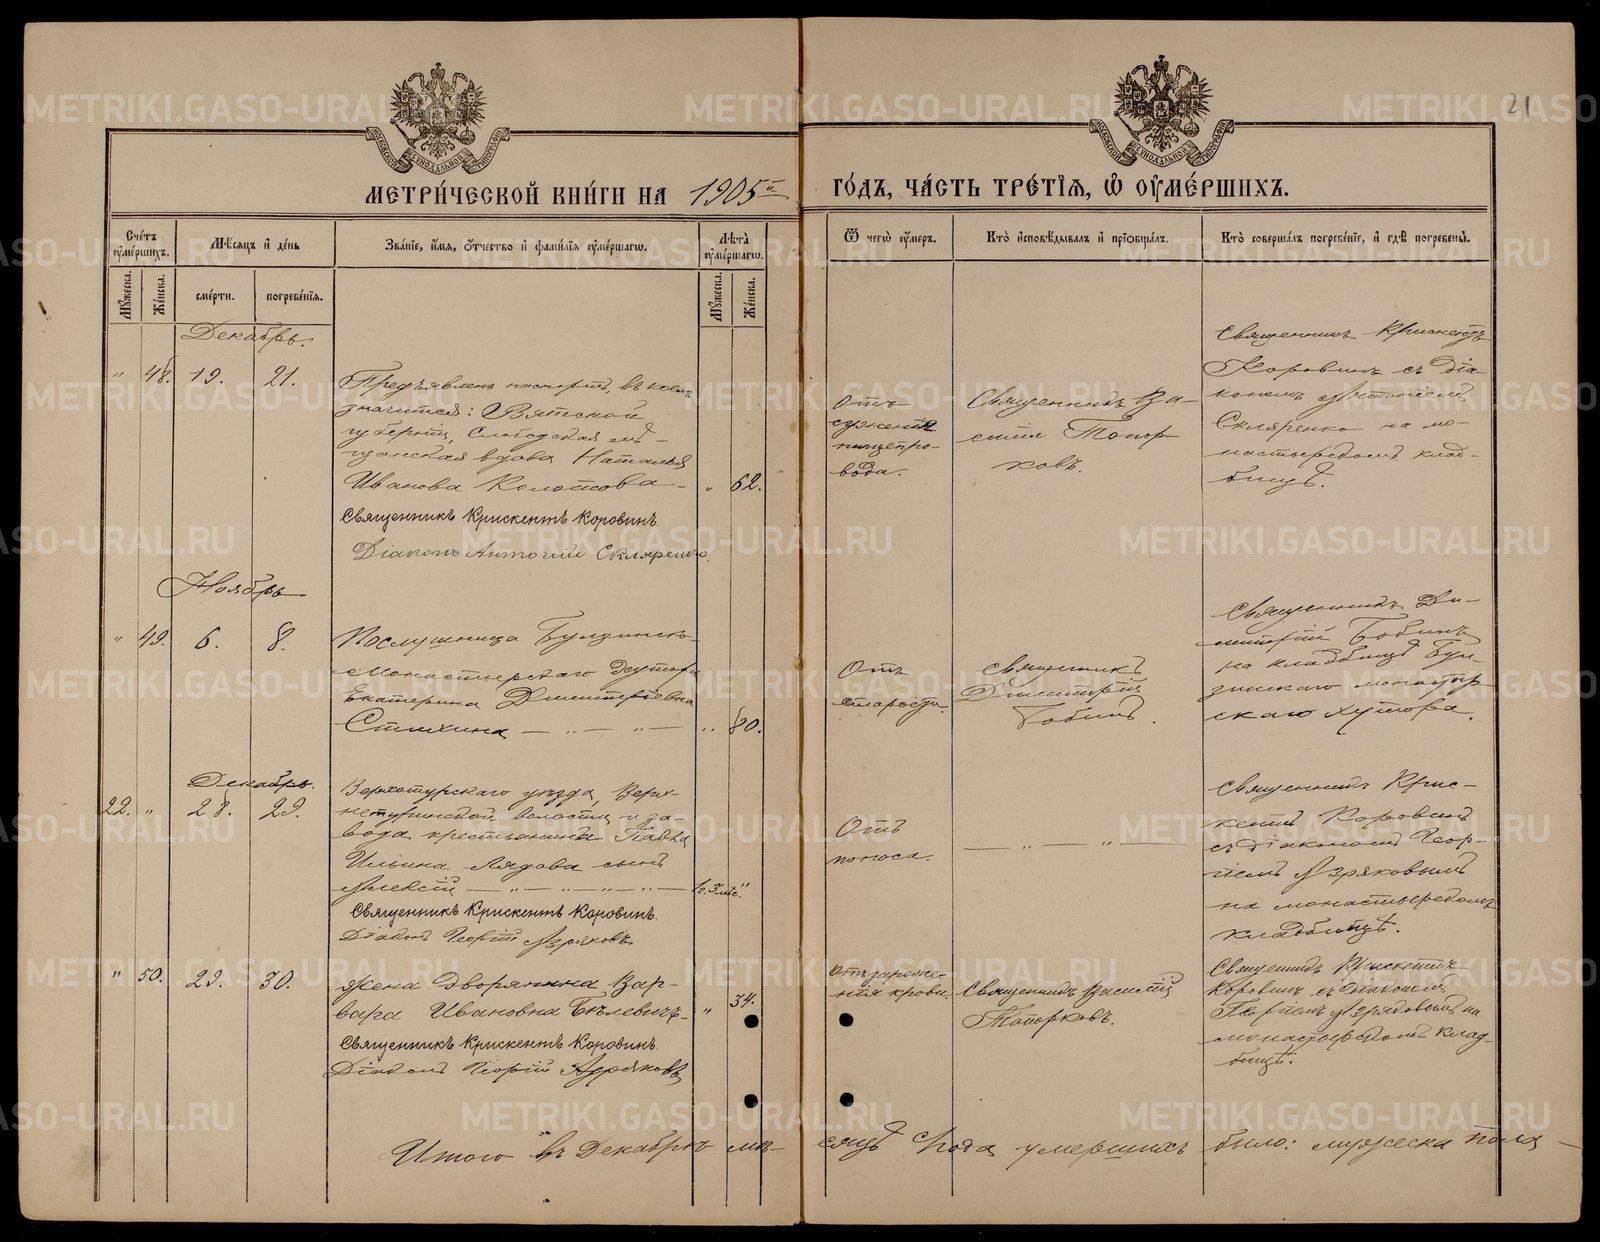 21
МЕТРИ́ЧЕСКОЙ КНИ́ГИ НА 1905й
ГО́ДЪ, ЧА́СТЬ ТРЕ́ТІѦ, Ѡ ОУМЕ́РШИХЪ.
Сче́тъ оумéршихъ.
Мѣсяцъ и день
Зва́ніе, и́мя, о́тчество и фами́лія оуме́ршагѡ.
Лѣта̀ оумéршагѡ.
Ѿ чегѡ̀ оу́меръ.
Кто̀ исповѣдывалъ и пріобща́лъ.
Кто̀ соверша́лъ погребе́ніе, и гдѣ̀ погребены̀.
Мужеска.
Же́нска.
сме́рти.
погребе́нія.
Мужеска.
Же́нска.
Декабрь.
" 48. 19. 21.
Предъявленъ паспортъ, въ коемъ
значится: Вятской
губерніи, Слободская мѣ-
щанская вдова Наталья
Иванова Колотова - " 62.
Священникъ Крискентъ Коровинъ.
Діаконъ Антоній Скляренко.
Отъ
суженія
пищепро-
вода.
Священникъ Ва-
силій Топор-
ковъ.
Священникъ Крискентъ
Коровинъ съ діа-
кономъ Антоніемъ
Скляренко на мо-
настырскомъ клад-
бищѣ.
Ноябрь
" 49. 6. 8.
Послушница
Монастырскаго Хутора
Екатерина Димитріевна
Стихина — " — " — " 80.
Отъ
старости.
Священникъ
Димитрій
Бобинъ.
Священникъ Ди-
митрій Бобинъ
на кладбищѣ Бул-
зинскаго монастыр
скаго хутора.
Декабрь.
22. " 28. 29.
Верхотурскаго уѣзда, Верх-
нетуринской волости и за-
вода крестьянина Павла
Ильина Лядова сынъ
Алексій — " — " — " — " —
Священникъ Крискентъ Коровинъ.
Діаконъ Георгій Азряковъ.
Отъ
поноса.
— " — " —
Священникъ Крис-
кентъ Коровинъ
съ діакономъ Геор-
гіемъ Азряковымъ
на монастырскомъ
кладбищѣ.
" 50. 29. 30.
Жена дворянина Вар-
вара Ивановна Бѣлевичъ - " 34.
Священникъ Крискентъ Коровинъ.
Діаконъ Георгій Азряковъ
Отъ зараже-
нія крови.
Священникъ Василій
Топорковъ.
Священникъ Крискентъ
Коровинъ съ діакономъ
Георгіемъ Азряковымъ на
монастырскомъ клад-
бищѣ.
Итого въ Декабрѣ мѣ-
сяцѣ с. года умершихъ было: мужеска пола —
METRIKI.GASO-URAL.RU